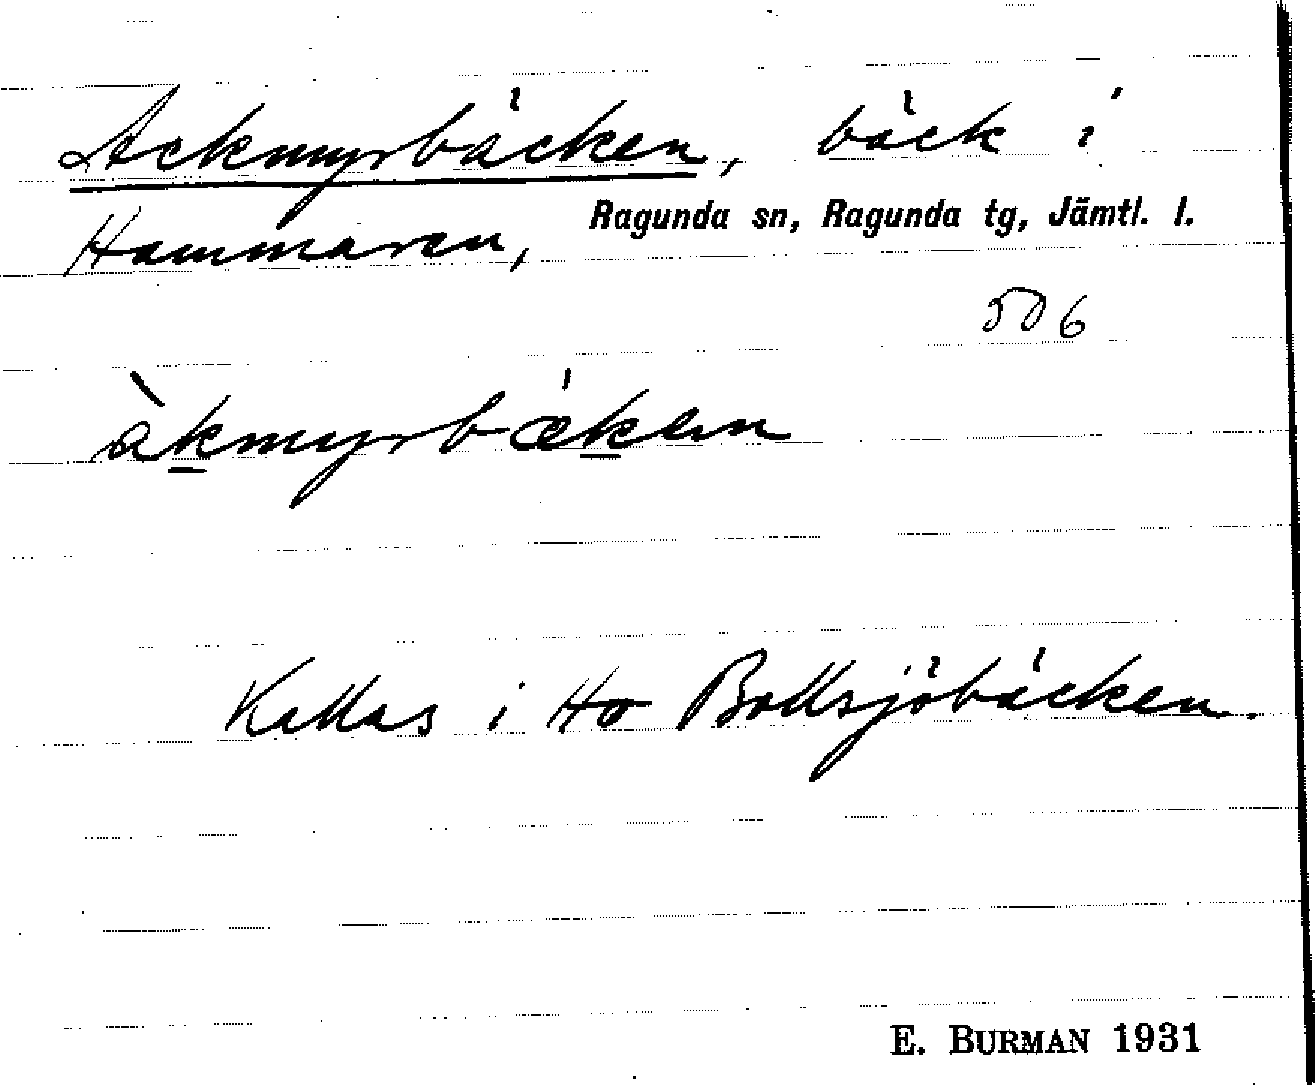 Ackmyrbäcken, bäck i
Hammaren, Ragunda sn, Ragunda tg, Jämtl. l.
506
àkmyrbæken
Kallas i Ho Bollsjöbäcken.
E. BURMAN 1931